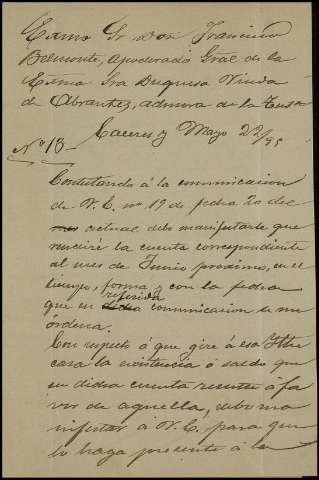 Exmo Sr Don Francisco
Belmonte, Apoderado Gral de la
Exma Sra Duquesa Viuda
de Abrantes, admora de la Testa
Caceres y Mayo 22/95
Nº 13
Contestando á la comunicacion
de V.E. nº 19 de fecha 20 del
actual debo manifestarle que
rendiré la cuenta correspondiente
al mes de Junio procsimo, en el
tiempo, forma y con la fecha
que en referida comunicacion se me
órdena.
Con respecto á que gire á esa Ille
casa la ecsistencia ó saldo que
en dicha cuenta resulte á fa
vor de aquella, debo ma
nifestar á V.E. para que
lo haga presente á la